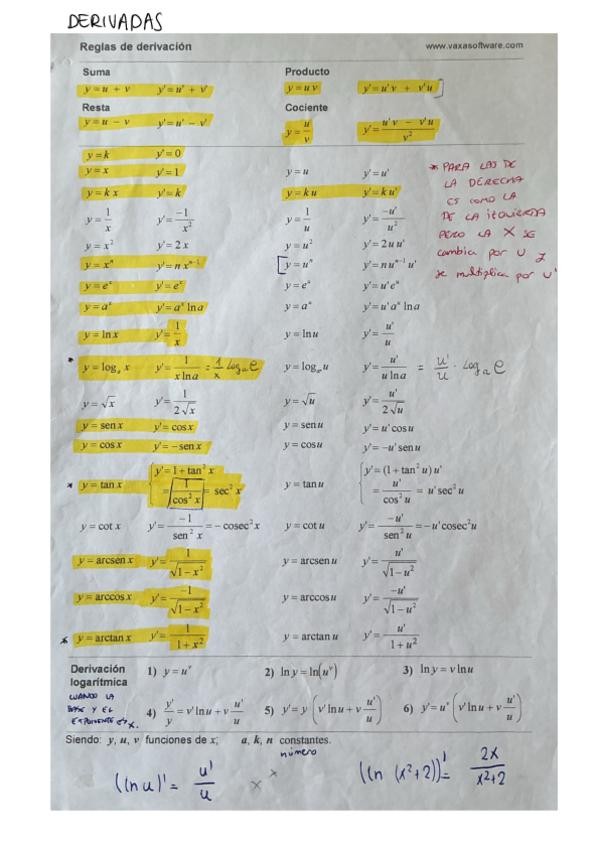 DERIVADAS
Reglas de derivación www.vaxasoftware.com
Suma Producto
y = u + v y' = u' + v' y = u v y' = u'v + v'u
Resta Cociente
y = u − v y' = u' − v' y = u/v y' = (u'v − v'u)/v²
y = k y' = 0
y = x y' = 1 y = u y' = u'
y = k x y' = k y = k u y' = k u'
y = 1/x y' = −1/x² y = 1/u y' = −u'/u²
y = x² y' = 2x y = u² y' = 2uu'
y = xⁿ y' = n xⁿ⁻¹ y = uⁿ y' = n uⁿ⁻¹ u'
y = eˣ y' = eˣ y = eᵘ y' = u'eᵘ
y = aˣ y' = aˣ ln a y = aᵘ y' = u'aᵘ ln a
y = ln x y' = 1/x y = ln u y' = u'/u
* y = logₐ x y' = 1/(x ln a) = 1/x logₐ e y = logₐ u y' = u'/(u ln a) = u'/u · logₐ e
y = √x y' = 1/(2√x) y = √u y' = u'/(2√u)
y = sen x y' = cos x y = sen u y' = u' cos u
y = cos x y' = −sen x y = cos u y' = −u' sen u
* y = tan x y' = 1 + tan² x = 1/cos² x = sec² x y = tan u y' = (1 + tan² u) u' = u'/cos² u = u' sec² u
y = cot x y' = −1/sen² x = −cosec² x y = cot u y' = −u'/sen² u = −u' cosec² u
y = arcsen x y' = 1/√(1−x²) y = arcsen u y' = u'/√(1−u²)
y = arccos x y' = −1/√(1−x²) y = arccos u y' = −u'/√(1−u²)
* y = arctan x y' = 1/(1+x²) y = arctan u y' = u'/(1+u²)
* PARA LAS DE
LA DERECHA
ES COMO LA
DE LA IZQUIERDA
PERO LA X SE
cambia por u y
se multiplica por u'
Derivación
logarítmica
CUANDO LA
BASE Y EL
EXPONENTE ES X.
1) y = uᵛ 2) ln y = ln(uᵛ) 3) ln y = v ln u
4) y'/y = v' ln u + v u'/u 5) y' = y (v' ln u + v u'/u) 6) y' = uᵛ (v' ln u + v u'/u)
Siendo: y, u, v funciones de x; a, k, n constantes.
número
(ln u)' = u'/u x ˣ (ln (x²+2))' = 2x/(x²+2)